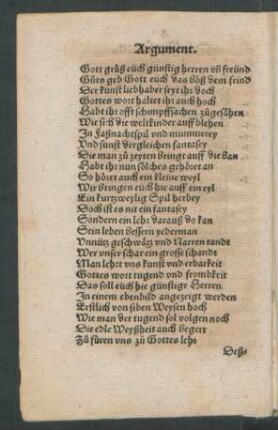 Argument.
Gott grüß euch günstig herren vñ freünd
Güts geb Gott euch das böß dem feind
Der kunst liebhaber seyt ihr doch
Gottes wort haltet ihr auch hoch
Habt ihr offt schimpffsachen zügesähen
Wie sich die weltkinder auff blehen
In Faßnachtspil vnd mummerey
Vnd sunst dergleichen fantasey
Die man zü zeyten bringt auff die ban
Habt ihr nun sölches gehöret an
So höret auch ein kleine weyl
Wir bringen euch hie auff ein eyl
Ein kurtzweylig Spil herbey
Doch ist es nit ein fantasey
Sondern ein lehr darauß do kan
Sein leben bessern yederman
Vnnütz geschwätz vnd Narren tandt
Wer vnser schar ein grosse schandt
Man lehrt vns kunst vnd erbarkeit
Gottes wort tugend vnd frombkeit
Das soll euch hie günstige Herren
In einem ebenbild angezeigt werden
Erstlich von siben Weysen hoch
Wie man der tugend sol volgen noch
Die edle Weyßheit auch begert
Zü füren vns zü Gottes lehr
Deß-